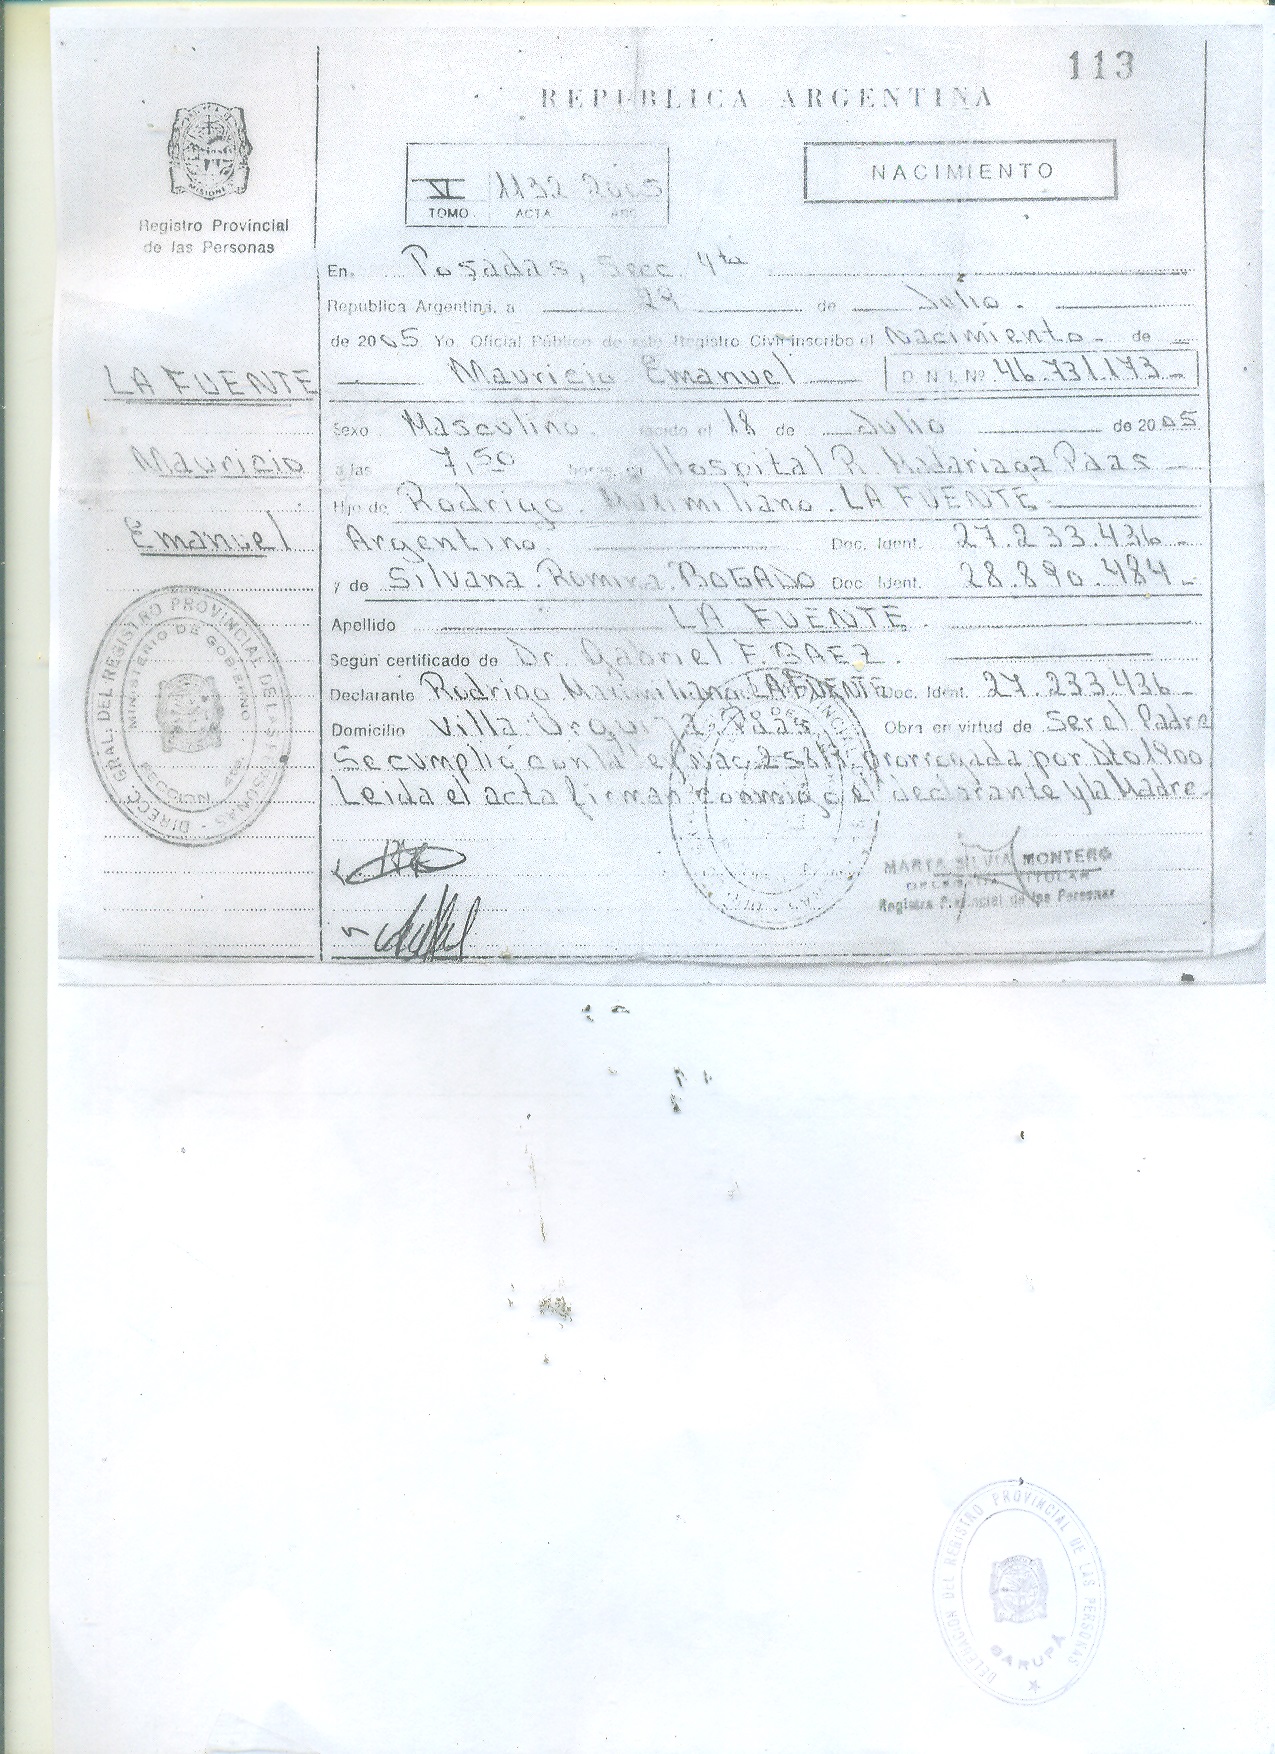 113
REPUBLICA ARGENTINA
NACIMIENTO
VI 1132 2005
TOMO ACTA AÑO
MISIONES
Registro Provincial
de las Personas
LA FUENTE
Mauricio
Emanuel
En Posadas, Secc. 4ta
Republica Argentina, a 29 de Julio.
de 2005 Yo, Oficial Público de este Registro Civil inscribo el Nacimiento de
Mauricio Emanuel D.N.I. Nº 46.731.173
Sexo Masculino. nacido el 18 de Julio de 2005
a las 7,50 horas, en Hospital R. Madariaga Pdas
Hijo de Rodrigo Maximiliano LA FUENTE
Argentino. Doc. Ident. 27.233.436
y de Silvana Romina BOGADO Doc. Ident. 28.890.484
Apellido LA FUENTE.
Según certificado de Dr. Gabriel F. BAEZ.
Declarante Rodrigo Maximiliano LA FUENTE Doc. Ident. 27.233.436
Domicilio Villa Urquiza Pdas Obra en virtud de Ser el Padre
Se cumplió con la prorrogada por Dto 1900
Leida el acta firman conmigo el declarante y la Madre.
MARTA SILVIA MONTERO
DELEGADA TITULAR
Registro Provincial de las Personas
DIRECC. GRAL. DEL REGISTRO PROVINCIAL DE LAS PERSONAS
MINISTERIO DE GOBIERNO
SECCION 4ta
DELEGACION DEL REGISTRO PROVINCIAL DE LAS PERSONAS
GARUPA